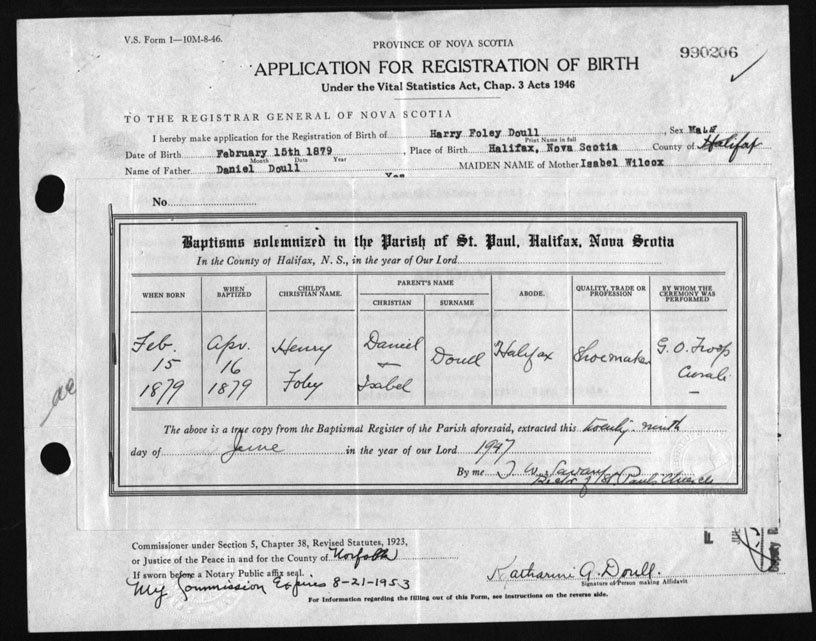 V.S. Form 1—10M-8-46.
PROVINCE OF NOVA SCOTIA
990206
APPLICATION FOR REGISTRATION OF BIRTH
Under the Vital Statistics Act, Chap. 3 Acts 1946
TO THE REGISTRAR GENERAL OF NOVA SCOTIA
I hereby make application for the Registration of Birth of Harry Foley Doull, Sex Male
Print Name in full
Date of Birth February 15th 1879, Place of Birth Halifax, Nova Scotia County of Halifax
Month Date Year
Name of Father Daniel Doull MAIDEN NAME of Mother Isabel Wilcox
No.
Baptisms solemnized in the Parish of St. Paul, Halifax, Nova Scotia
In the County of Halifax, N. S., in the year of Our Lord
WHEN BORN
WHEN BAPTIZED
CHILD'S CHRISTIAN NAME.
PARENT'S NAME
CHRISTIAN
SURNAME
ABODE.
QUALITY, TRADE OR PROFESSION
BY WHOM THE CEREMONY WAS PERFORMED
Feb. 15 1879
Apr. 16 1879
Henry Foley
Daniel — Isabel
Doull
Halifax
Shoemaker
G. O. Troop
The above is a true copy from the Baptismal Register of the Parish aforesaid, extracted this twenty ninth
day of June in the year of our Lord 1947
By me
Rector of St. Paul's Church
Commissioner under Section 5, Chapter 38, Revised Statutes, 1923,
or Justice of the Peace in and for the County of Norfolk
If sworn before a Notary Public affix seal.
My Commission Expires 8-21-1953
Katharine A. Doull.
Signature of Person making Affidavit
For Information regarding the filling out of this Form, see instructions on the reverse side.